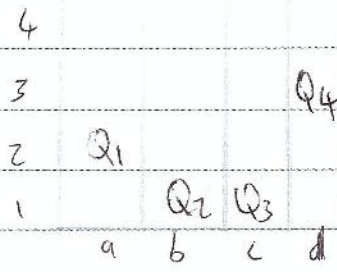 4
3 Q4
2 Q1
1 Q2 Q3
a b c d